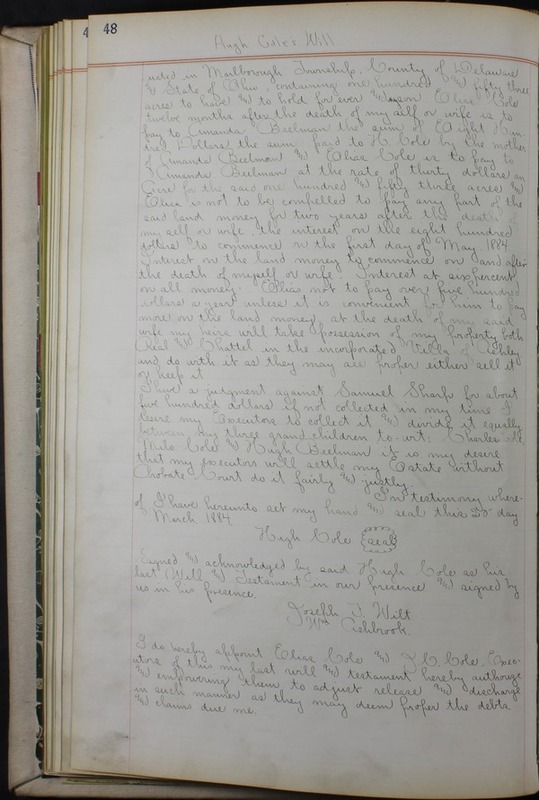 48
Hugh Coles Will
uated in Marlborough Township, County of Delaware
& State of Ohio, containing one hundred & fifty three
acres to have & to hold for ever & upon Elias Cole
twelve months after the death of my self or wife is to
pay to Amanda Beelman the sum of Eight Hun-
dred Dollars the sum paid to H Cole by the mother
of Amanda Beelman & Elias Cole is to pay to
Amanda Beelman at the rate of thirty dollars an
acre for the said one hundred & fifty three acres &
Elias is not to be compelled to pay any part of the
said land money for two years after the death of
my self or wife, the interest on the eight hundred
dollars to commence on the first day of May 1884
Interest on the land money to commence on and after
the death of myself or wife. Interest at six percent
on all money. Elias not to pay over five hundred
dollars a year unless it is convenient for him to pay
more on the land money, at the death of me said
wife my heirs will take possession of my property both
Real & Chattel in the incorporated Village of Ashley
and do with it as they may see proper either sell it
or keep it
I have a judgment against Samuel Sharp for about
five hundred dollars if not collected in my time I
desire my Executors to collect it & divide it equally
between my three grand children to-wit: Charles
Milo Cole & Hugh Beelman it is my desire
that my executors will settle my Estate without
Probate Court do it fairly & justly.
In testimony where-
of I have hereunto set my hand & seal this day
March 1884.
Hugh Cole seal
Signed & acknowledged by said Hugh Cole as his
last Will & Testament in our presence & signed by
us in his presence.
Joseph J. Wilt
Wm Ashbrook.
I do hereby appoint Elias Cole & Cole, Exec-
utors of this my last will & testament hereby authorize
& empowring them to adjust release & discharge
in such manner as they may deem proper the debts
& claims due me.